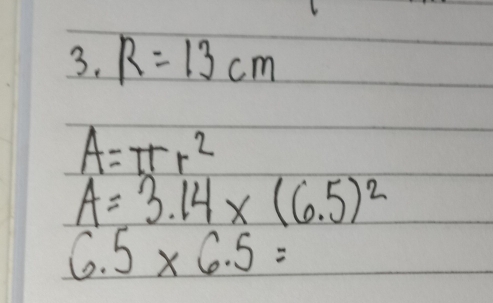 3. R = 13 cm
A = πr²
A = 3.14 x (6.5)²
6.5 x 6.5 =